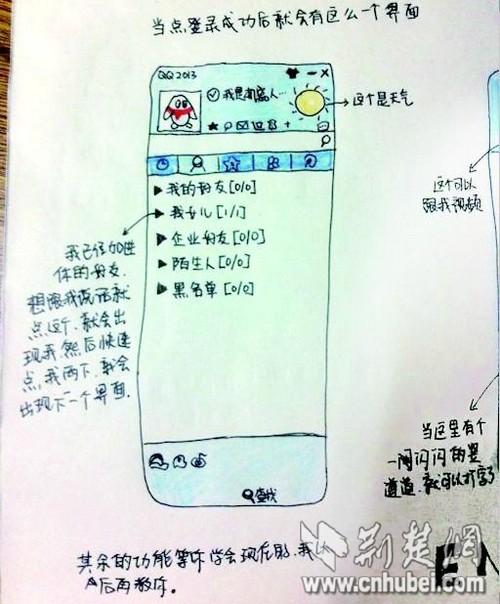 当点登录成功后就会有这么一个界面
QQ 2013
我是机器人...
这个是天气
我的好友 [0/0]
我女儿 [1/1]
企业好友 [0/0]
陌生人 [0/0]
黑名单 [0/0]
我已经加进
你的好友.
想跟我说话就
点这个.就会出
现我,然后快速
点,我两下,就会
出现下一个界面.
这个可以
跟我视频
当这里有个
一闪闪闪的竖
道道.就可以打字了
查找
其余的功能等你学会现在的,我
后再教你.
荆楚网
www.cnhubei.com